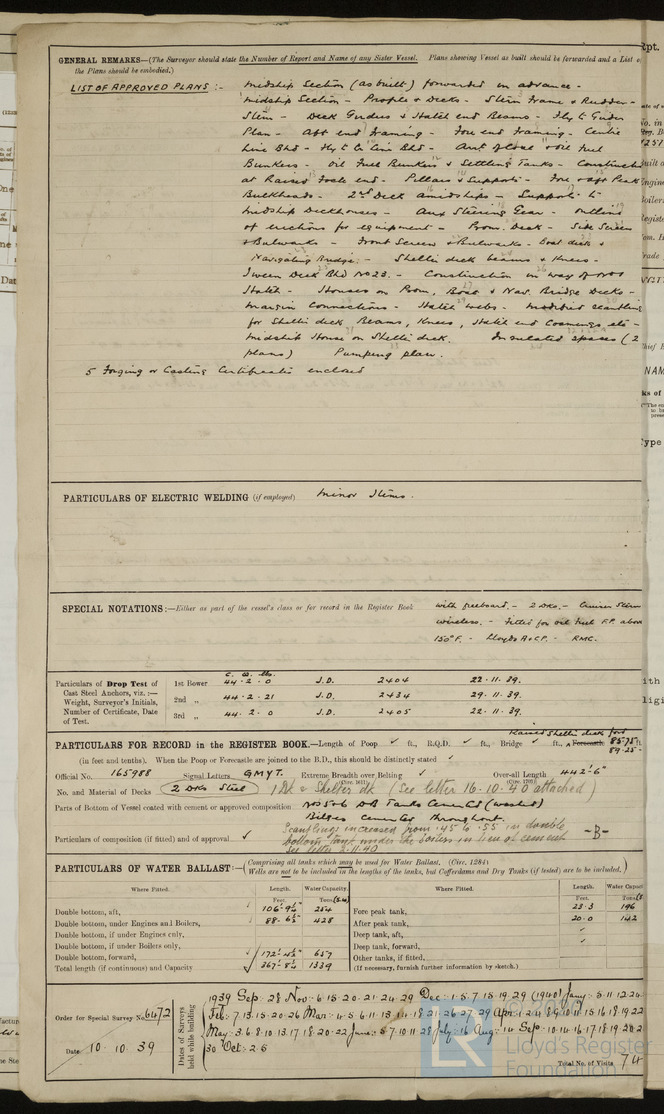 GENERAL REMARKS—(The Surveyor should state the Number of Report and Name of any Sister Vessel. Plans showing Vessel as built should be forwarded and a List
the Plans should be embodied.)
LIST OF APPROVED PLANS :- Midship Section (as built) forwarded in advance -
Midship Section - Profile & Decks - Stern Frame & Rudder -
Stem - Deck Girders & Hatch end Beams -
Plan - Aft end Framing - Fore end Framing - Centre
Line Bhd - to Line Bhd - Arrt of Coal & Oil Fuel
Bunkers - Oil Fuel Bunkers & Settling Tanks - Construct
at Raised Focle end - Pillars & Supports - Fore & Aft Peak
Bulkheads - 2nd Deck amidships - Supports to
Midship Deckhouses - Aux Steering Gear - Outline
of erections for equipment - Prom. Deck - Side Screen
& Bulwarks - Front Screen & Bulwarks - Boat deck &
Navigating Bridge - Shelter deck beams & Knees -
Tween Deck Bhd No 23 - Construction in way of No 1
Hatch - Houses on Prom, Boat & Nav. Bridge Decks -
Margin Connections - Hatch webs - Modified scantling
for Shelter deck Beams, Knees, Hatch end Coamings etc -
Midship House on Shelter deck. Insulated spaces (2
plans) Pumping plan.
5 Forging or Casting Certificates enclosed
PARTICULARS OF ELECTRIC WELDING (if employed) Minor Items.
SPECIAL NOTATIONS:—Either as part of the vessel's class or for record in the Register Book with freeboard. - 2 Dks. - Cruiser Stern
wireless. - Fitted for oil fuel F.P. above
150°F. - Lloyds A&CP. - RMC.
Particulars of Drop Test of Cast Steel Anchors, viz. :— Weight, Surveyor's Initials, Number of Certificate, Date of Test.
c. q. lbs.
1st Bower 44 - 2 - 0 J.D. 2404 22 - 11 - 39.
2nd „ 44 - 2 - 21 J.D. 2434 29 - 11 - 39.
3rd „ 44 - 2 - 0 J.D. 2405 22 - 11 - 39.
Raised Shelter deck ford
PARTICULARS FOR RECORD in the REGISTER BOOK.—Length of Poop ✓ ft., R.Q.D. ✓ ft., Bridge ✓ ft., Forecastle 85.75 ft
89.25
(in feet and tenths). When the Poop or Forecastle are joined to the B.D., this should be distinctly stated ✓
Official No. 165988 Signal Letters GMYT. Extreme Breadth over Belting ✓ Over-all Length 442'-6"
(Circ. 1611) (Circ. 1703)
No. and Material of Decks 2 Dks Steel 1 Dk & Shelter dk (See letter 16.10.40 attached)
Parts of Bottom of Vessel coated with cement or approved composition No 5 & 6 DB Tanks Cemented (washed)
Bilges cemented throughout.
Particulars of composition (if fitted) and of approval ✓ Scantlings increased from .45 to .55 in double
bottom tank under the boilers in lieu of cement
See letter 2.11.40 -B-
PARTICULARS OF WATER BALLAST:— (Comprising all tanks which may be used for Water Ballast. (Circ. 1284)
Wells are not to be included in the lengths of the tanks, but Cofferdams and Dry Tanks (if tested) are to be included.)
Where Fitted. Length. Water Capacity. Where Fitted. Length. Water Capac
Feet. Tons Feet. Tons
Double bottom, aft, 106'-9½" 254 Fore peak tank, 23.3 196
Double bottom, under Engines and Boilers, 88-6½" 428 After peak tank, 20.0 142
Double bottom, if under Engines only, Deep tank, aft,
Double bottom, if under Boilers only, Deep tank, forward,
Double bottom, forward, 172'-4½" 657 Other tanks, if fitted,
Total length (if continuous) and Capacity 367'-8½" 1339 (If necessary, furnish further information by sketch.)
Order for Special Survey No. 6472
Date 10.10.39
Dates of Surveys held while building
1939 Sep: 28 Nov: 6.15.20.21.24.29 Dec: 1.5.7.15.19.29 (1940) Jany: 5.11.12.24
Feb: 7.13.15.20.26 Mar: 4.5.6.11.13.14.18.21.26.27.29 Apr: 1.2.4.8.9.10.11.15.16.18.19.22
May: 3.6.8.10.13.17.18.20.22 June: 5.7.10.11.28 July: 16 Aug: 14 Sep: 10.14.16.17.18.19.20.2
30 Oct: 2.5
Total No. of Visits 74
Lloyd's Register
Foundation